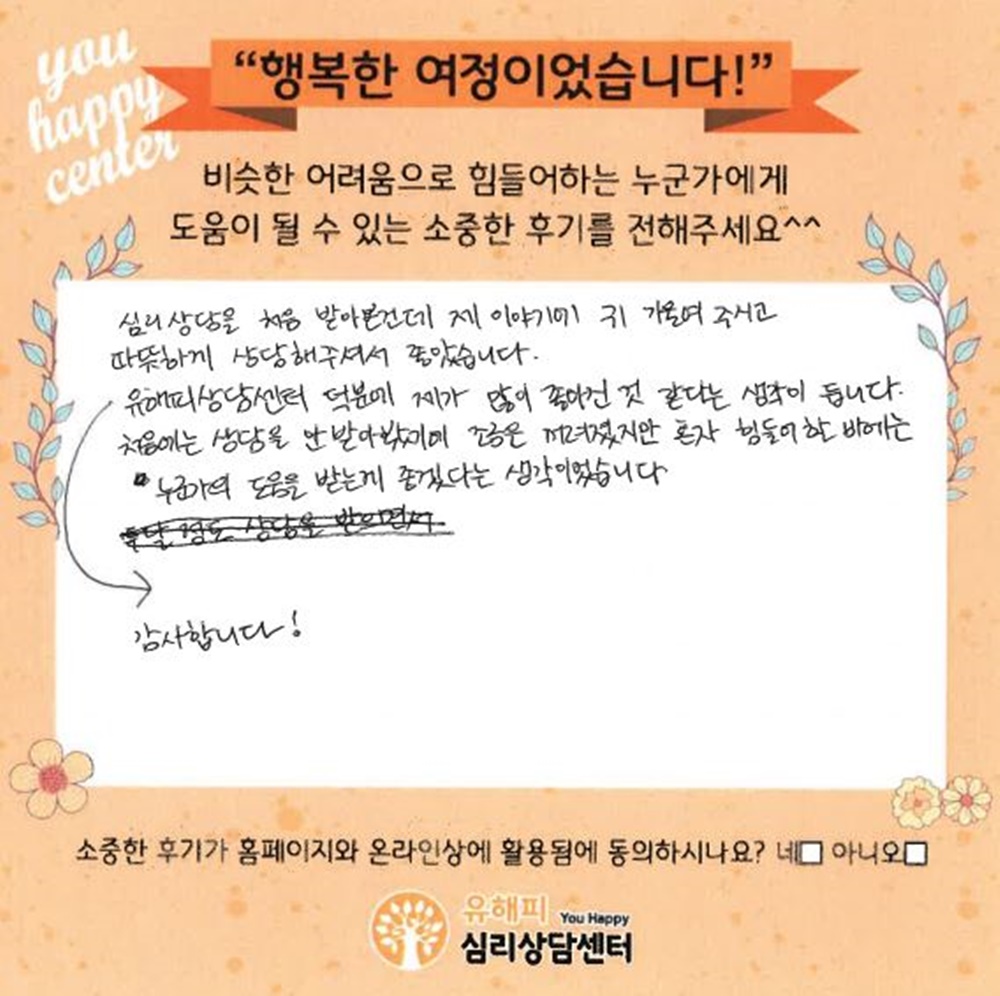 you
happy
center
“행복한 여정이었습니다!”
비슷한 어려움으로 힘들어하는 누군가에게
도움이 될 수 있는 소중한 후기를 전해주세요^^
심리상담을 처음 받아본건데 제 이야기에 귀 기울여 주시고
따뜻하게 상담해주셔서 좋았습니다.
유해피상담센터 덕분에 제가 많이 좋아진 것 같다는 생각이 듭니다.
처음에는 상담을 안 받아봤기에 조금은 꺼려졌지만 혼자 힘들어 할 바에는
누군가의 도움을 받는게 좋겠다는 생각이었습니다
달 정도 상담을 받으면서
감사합니다!
소중한 후기가 홈페이지와 온라인상에 활용됨에 동의하시나요? 네□ 아니오□
유해피 You Happy
심리상담센터